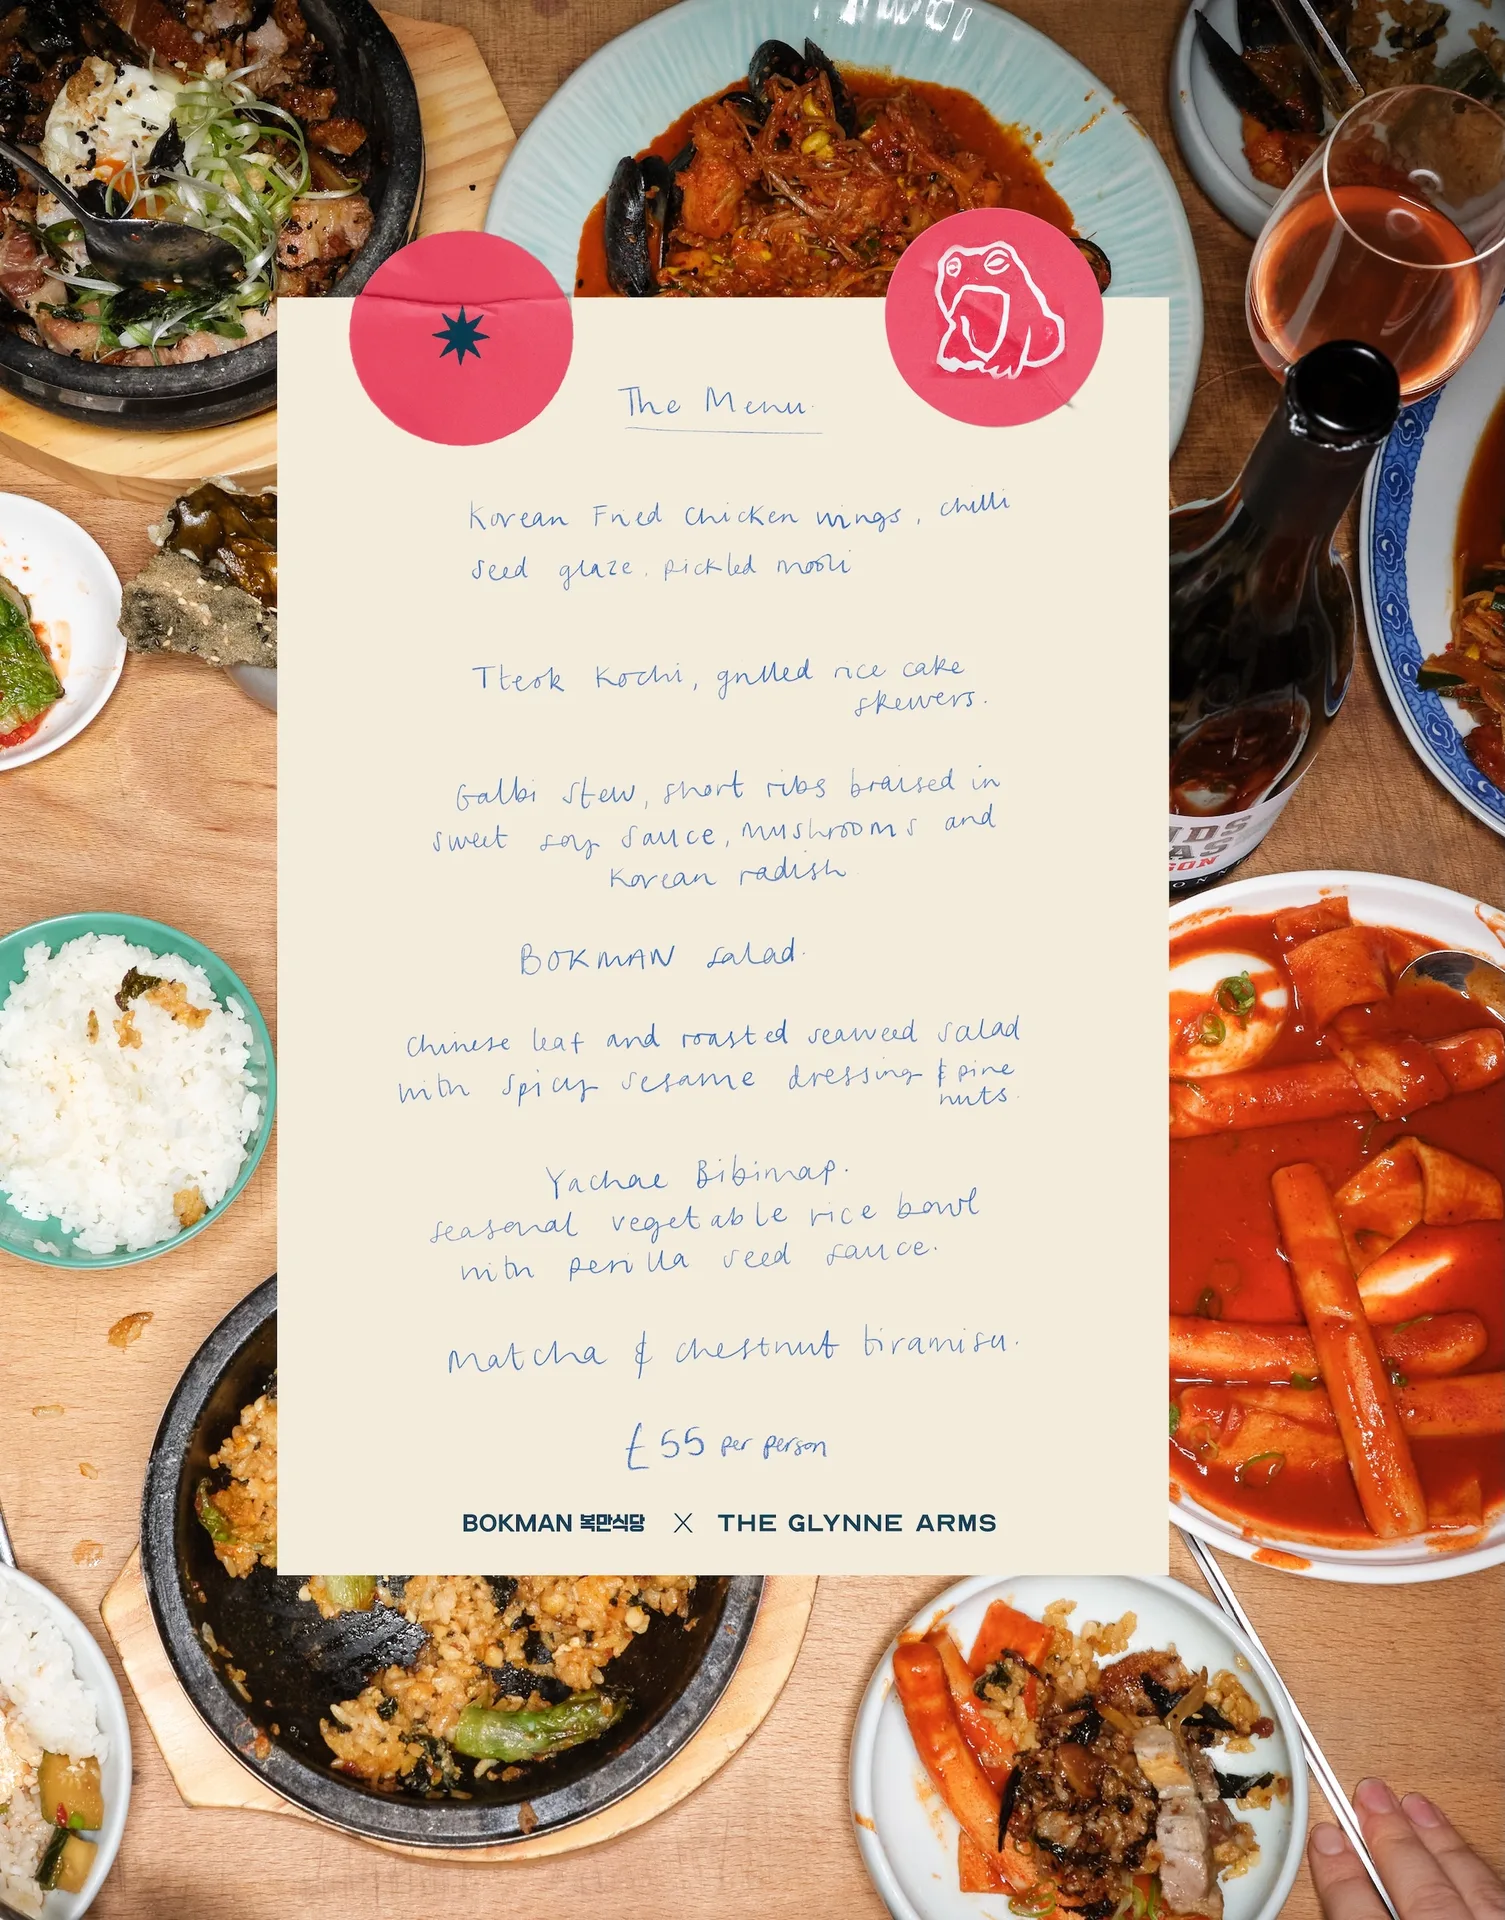 The Menu.
Korean Fried Chicken wings, chilli
seed glaze, pickled mooli
Tteok Kochi, grilled rice cake
skewers.
Galbi stew, short ribs braised in
sweet soy sauce, mushrooms and
Korean radish.
BOKMAN salad.
Chinese leaf and roasted seaweed salad
with spicy sesame dressing & pine
nuts.
Yachae Bibimap.
seasonal vegetable rice bowl
with perilla seed sauce.
Matcha & chestnut tiramisu.
£55 per person
BOKMAN 복만식당 X THE GLYNNE ARMS